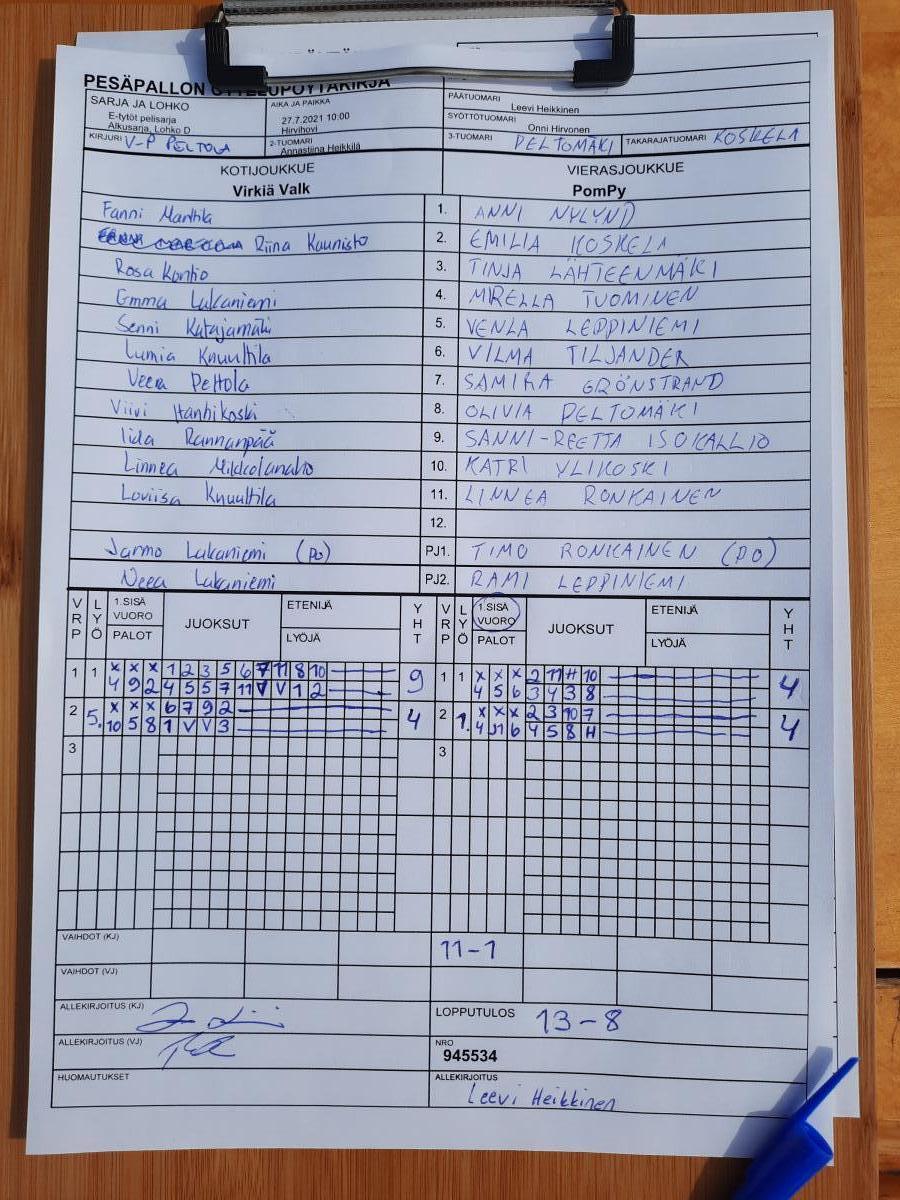 PESÄPALLON OTTELUPÖYTÄKIRJA
SARJA JA LOHKO
E-tytöt pelisarja
Alkusarja, Lohko D
AIKA JA PAIKKA
27.7.2021 10:00
Hirvihovi
PÄÄTUOMARI
Leevi Heikkinen
SYÖTTÖTUOMARI
Onni Hirvonen
KIRJURI V-P PELTOLA
2-TUOMARI
Annastiina Heikkilä
3-TUOMARI PELTOMÄKI
TAKARAJATUOMARI KOSKELA
KOTIJOUKKUE
Virkiä Valk
VIERASJOUKKUE
PomPy
Fanni Marttila 1. ANNI NYLUND
Riina Kaunisto 2. EMILIA KOSKELA
Rosa Kontio 3. TINJA LÄHTEENMÄKI
Emma Lakaniemi 4. MIRELLA TUOMINEN
Senni Katajamäki 5. VENLA LEPPINIEMI
Lumia Knuuttila 6. VILMA TILJANDER
Veera Peltola 7. SAMIRA GRÖNSTRAND
Viivi Hanhikoski 8. OLIVIA PELTOMÄKI
Iida Rannanpää 9. SANNI-REETTA ISOKALLIO
Linnea Mikkolanaho 10. KATRI YLIKOSKI
Loviisa Knuuttila 11. LINNEA RONKAINEN
12.
Jarmo Lakaniemi (po) PJ1. TIMO RONKAINEN (PO)
Neea Lakaniemi PJ2. RAMI LEPPINIEMI
VRP LYÖ 1.SISÄ VUORO PALOT JUOKSUT ETENIJÄ LYÖJÄ YHT VRP LYÖ 1.SISÄ VUORO PALOT JUOKSUT ETENIJÄ LYÖJÄ YHT
1 1 x x x 1 2 3 5 6 7 11 8 10 9 1 1 x x x 2 11 H 10 4
4 9 2 4 5 5 7 11 V V 1 2 4 5 6 3 4 3 8
2 5. x x x 6 7 9 2 4 2 1. x x x 2 3 10 7 4
10 5 8 1 V V 3 4 11 6 4 5 8 H
3 3
VAIHDOT (KJ) 11-1
VAIHDOT (VJ)
ALLEKIRJOITUS (KJ)
LOPPUTULOS 13-8
ALLEKIRJOITUS (VJ)
NRO
945534
HUOMAUTUKSET
ALLEKIRJOITUS
Leevi Heikkinen